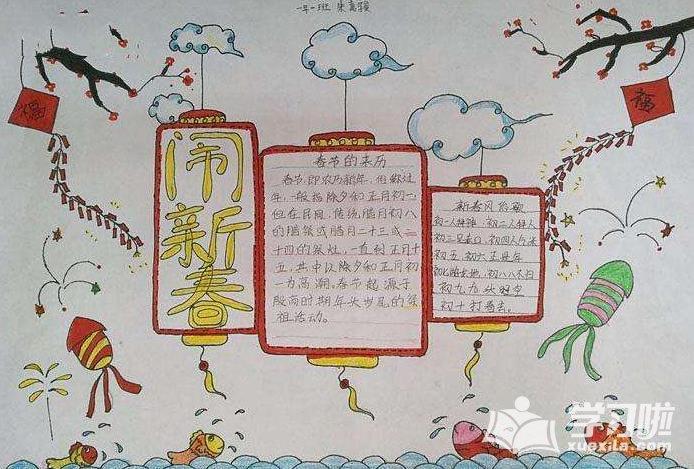 一年一班
福
福
闹新春
春节的来历
春节,即农历新年,俗称过
年,一般指除夕和正月初一。
但在民间,传统腊月初八
的腊祭或腊月二十三或二
十四的祭灶,一直到正月十
五,其中以除夕和正月初
一为高潮。春节起源于
殷商时期年头岁尾的祭
祖活动。
新春风俗歌
初一人拜神,初二人拜人
初五,初六正是年
初九九头
学习啦
xuexila.com